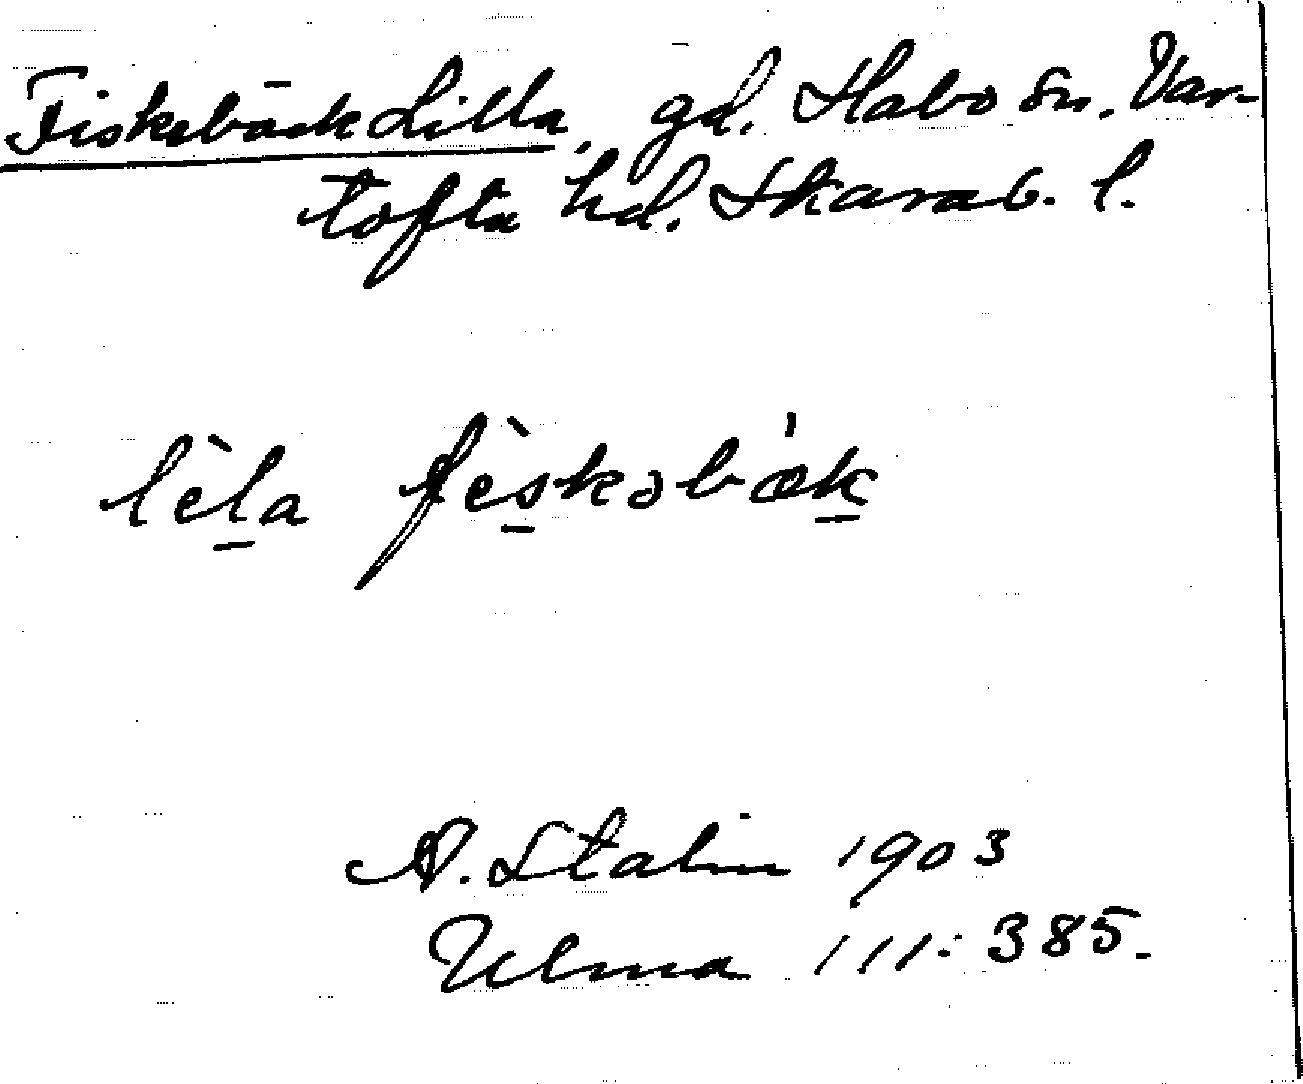 Fiskebäck Lilla, gd. Habo sn. Var-
tofta hd. Skarab. l.
lèl̠a fès̠kəbæ'k̠
A. Stalin 1903
Ulma 111:385.